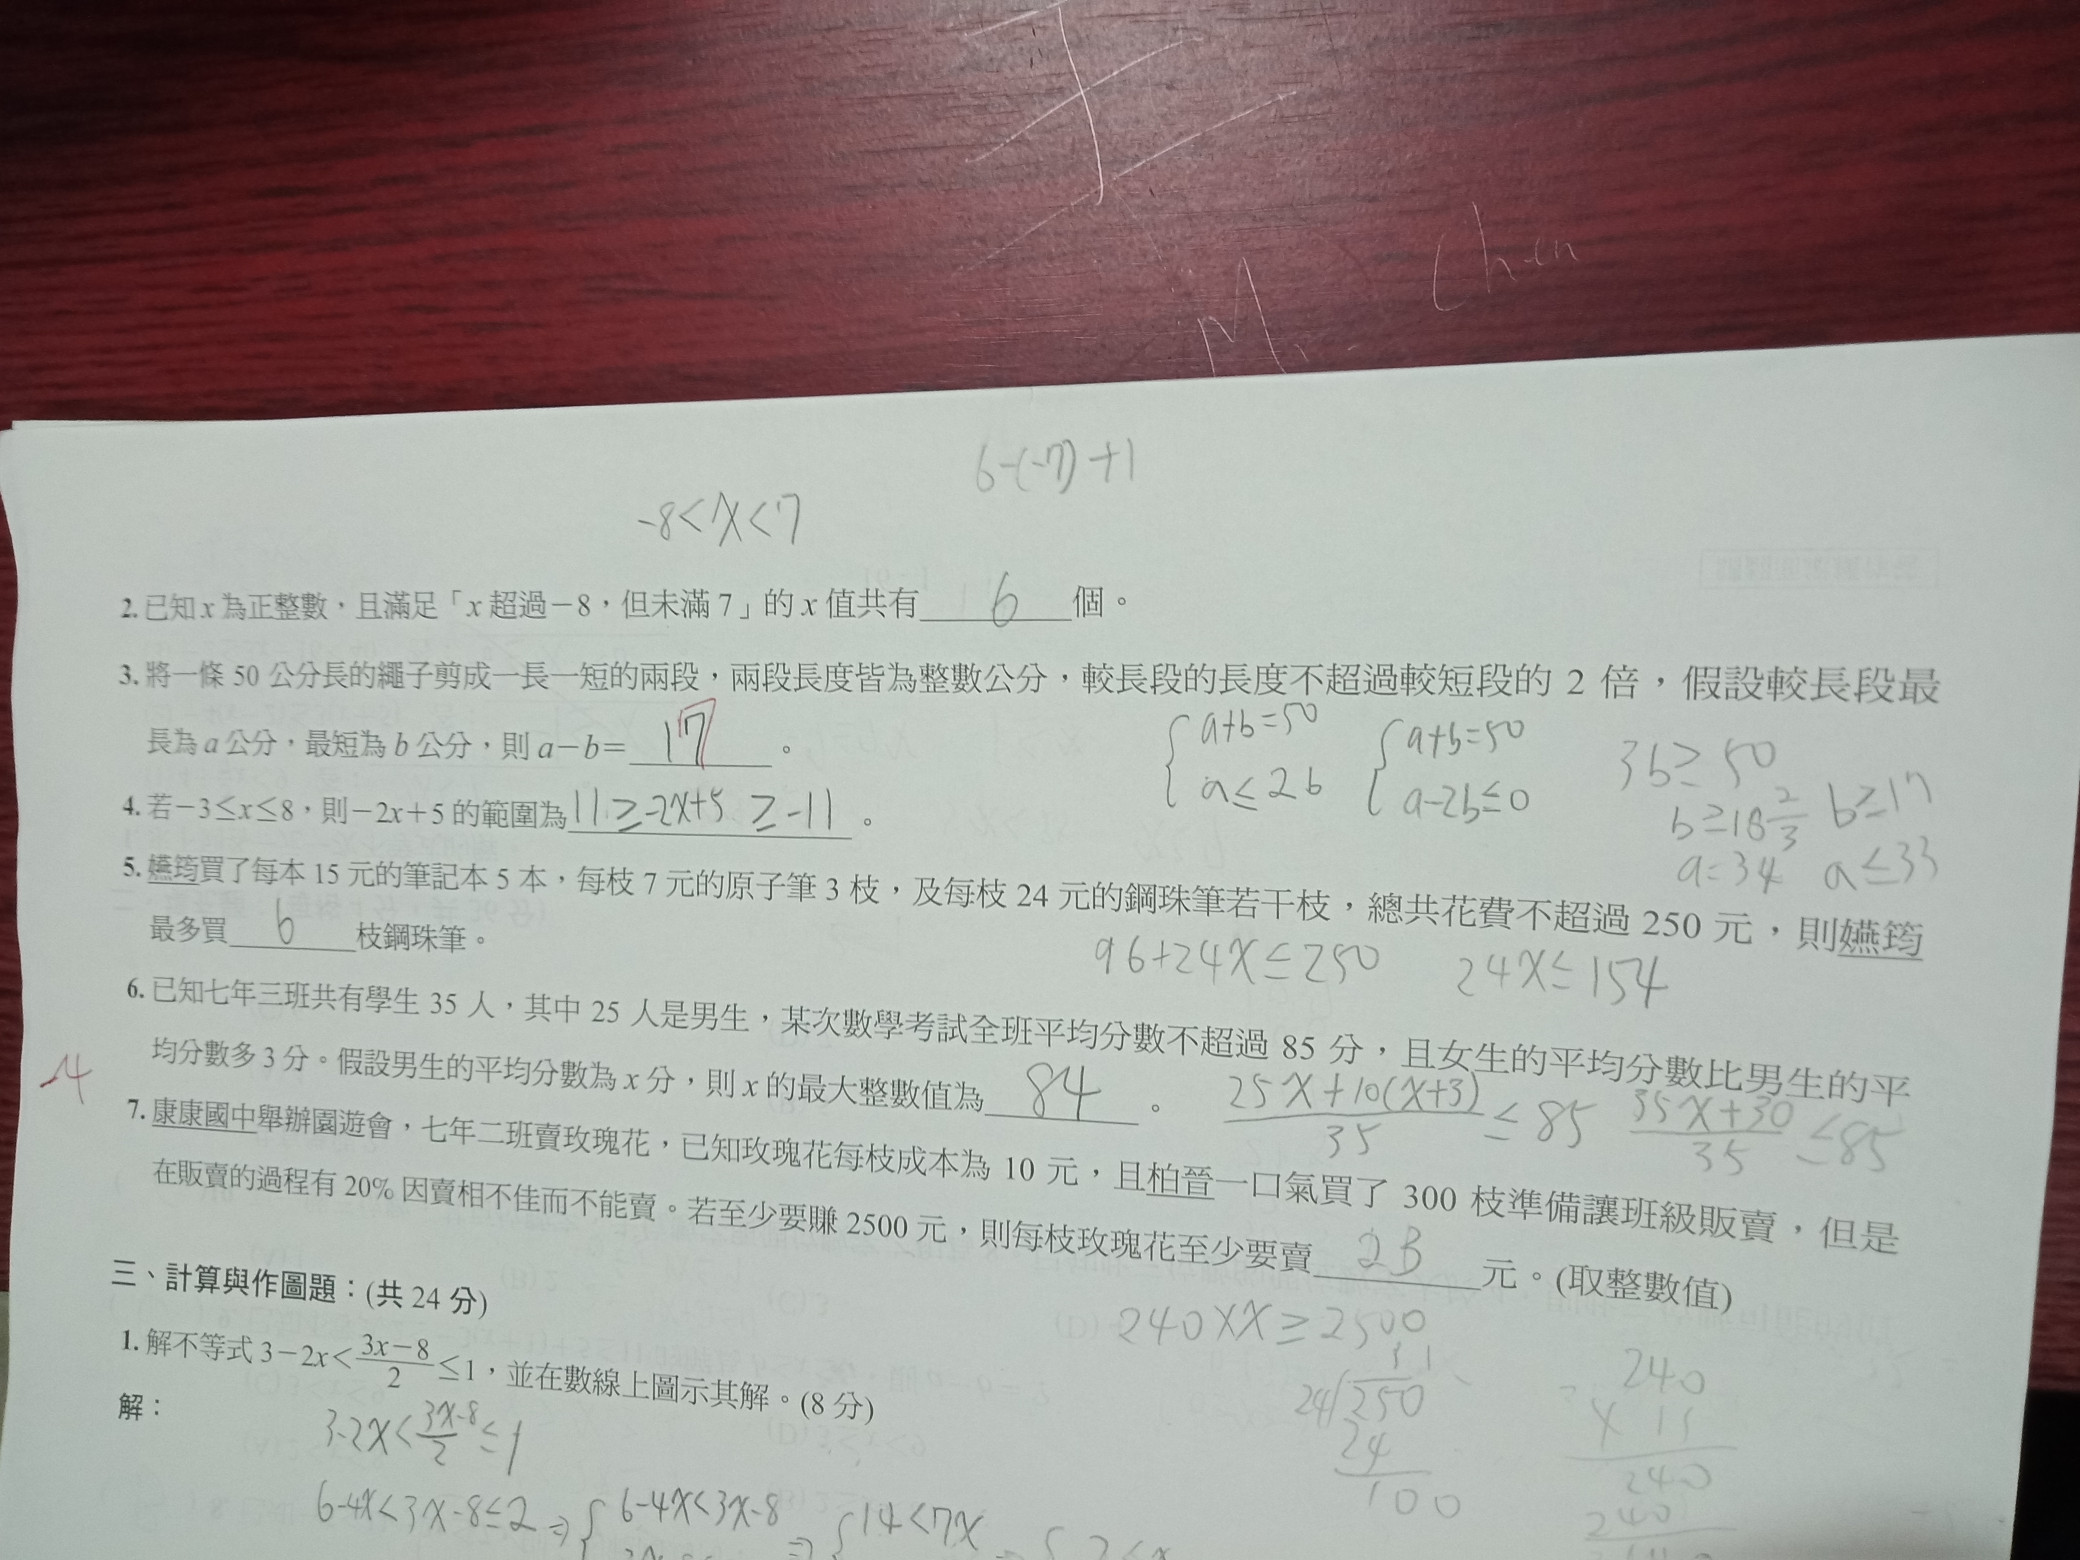 Chen
6-(-7)+1
-8<x<7
2. 已知 x 為正整數，且滿足「x 超過-8，但未滿 7」的 x 值共有 6 個。
3. 將一條 50 公分長的繩子剪成一長一短的兩段，兩段長度皆為整數公分，較長段的長度不超過較短段的 2 倍，假設較長段最
長為 a 公分，最短為 b 公分，則 a-b= 17 。
a+b=50 a+b=50 3b≥50
a≤2b a-2b≤0 b≥16 2/3 b≥17
a=34 a≤33
4. 若-3≤x≤8，則-2x+5 的範圍為 11≥-2x+5≥-11 。
5. 嬿筠買了每本 15 元的筆記本 5 本，每枝 7 元的原子筆 3 枝，及每枝 24 元的鋼珠筆若干枝，總共花費不超過 250 元，則嬿筠
最多買 6 枝鋼珠筆。
96+24x≤250 24x≤154
6. 已知七年三班共有學生 35 人，其中 25 人是男生，某次數學考試全班平均分數不超過 85 分，且女生的平均分數比男生的平
均分數多 3 分。假設男生的平均分數為 x 分，則 x 的最大整數值為 84 。
(25x+10(x+3))/35≤85 (35x+30)/35≤85
-4
7. 康康國中舉辦園遊會，七年二班賣玫瑰花，已知玫瑰花每枝成本為 10 元，且柏晉一口氣買了 300 枝準備讓班級販賣，但是
在販賣的過程有 20% 因賣相不佳而不能賣。若至少要賺 2500 元，則每枝玫瑰花至少要賣 23 元。(取整數值)
240×x≥2500
24 250
24
100
240
240
240
三、計算與作圖題：(共 24 分)
1. 解不等式 3-2x<(3x-8)/2≤1，並在數線上圖示其解。(8 分)
解：
3-2x<(3x-8)/2≤1
6-4x<3x-8≤2 ⇒ { 6-4x<3x-8 ⇒ { 14<7x